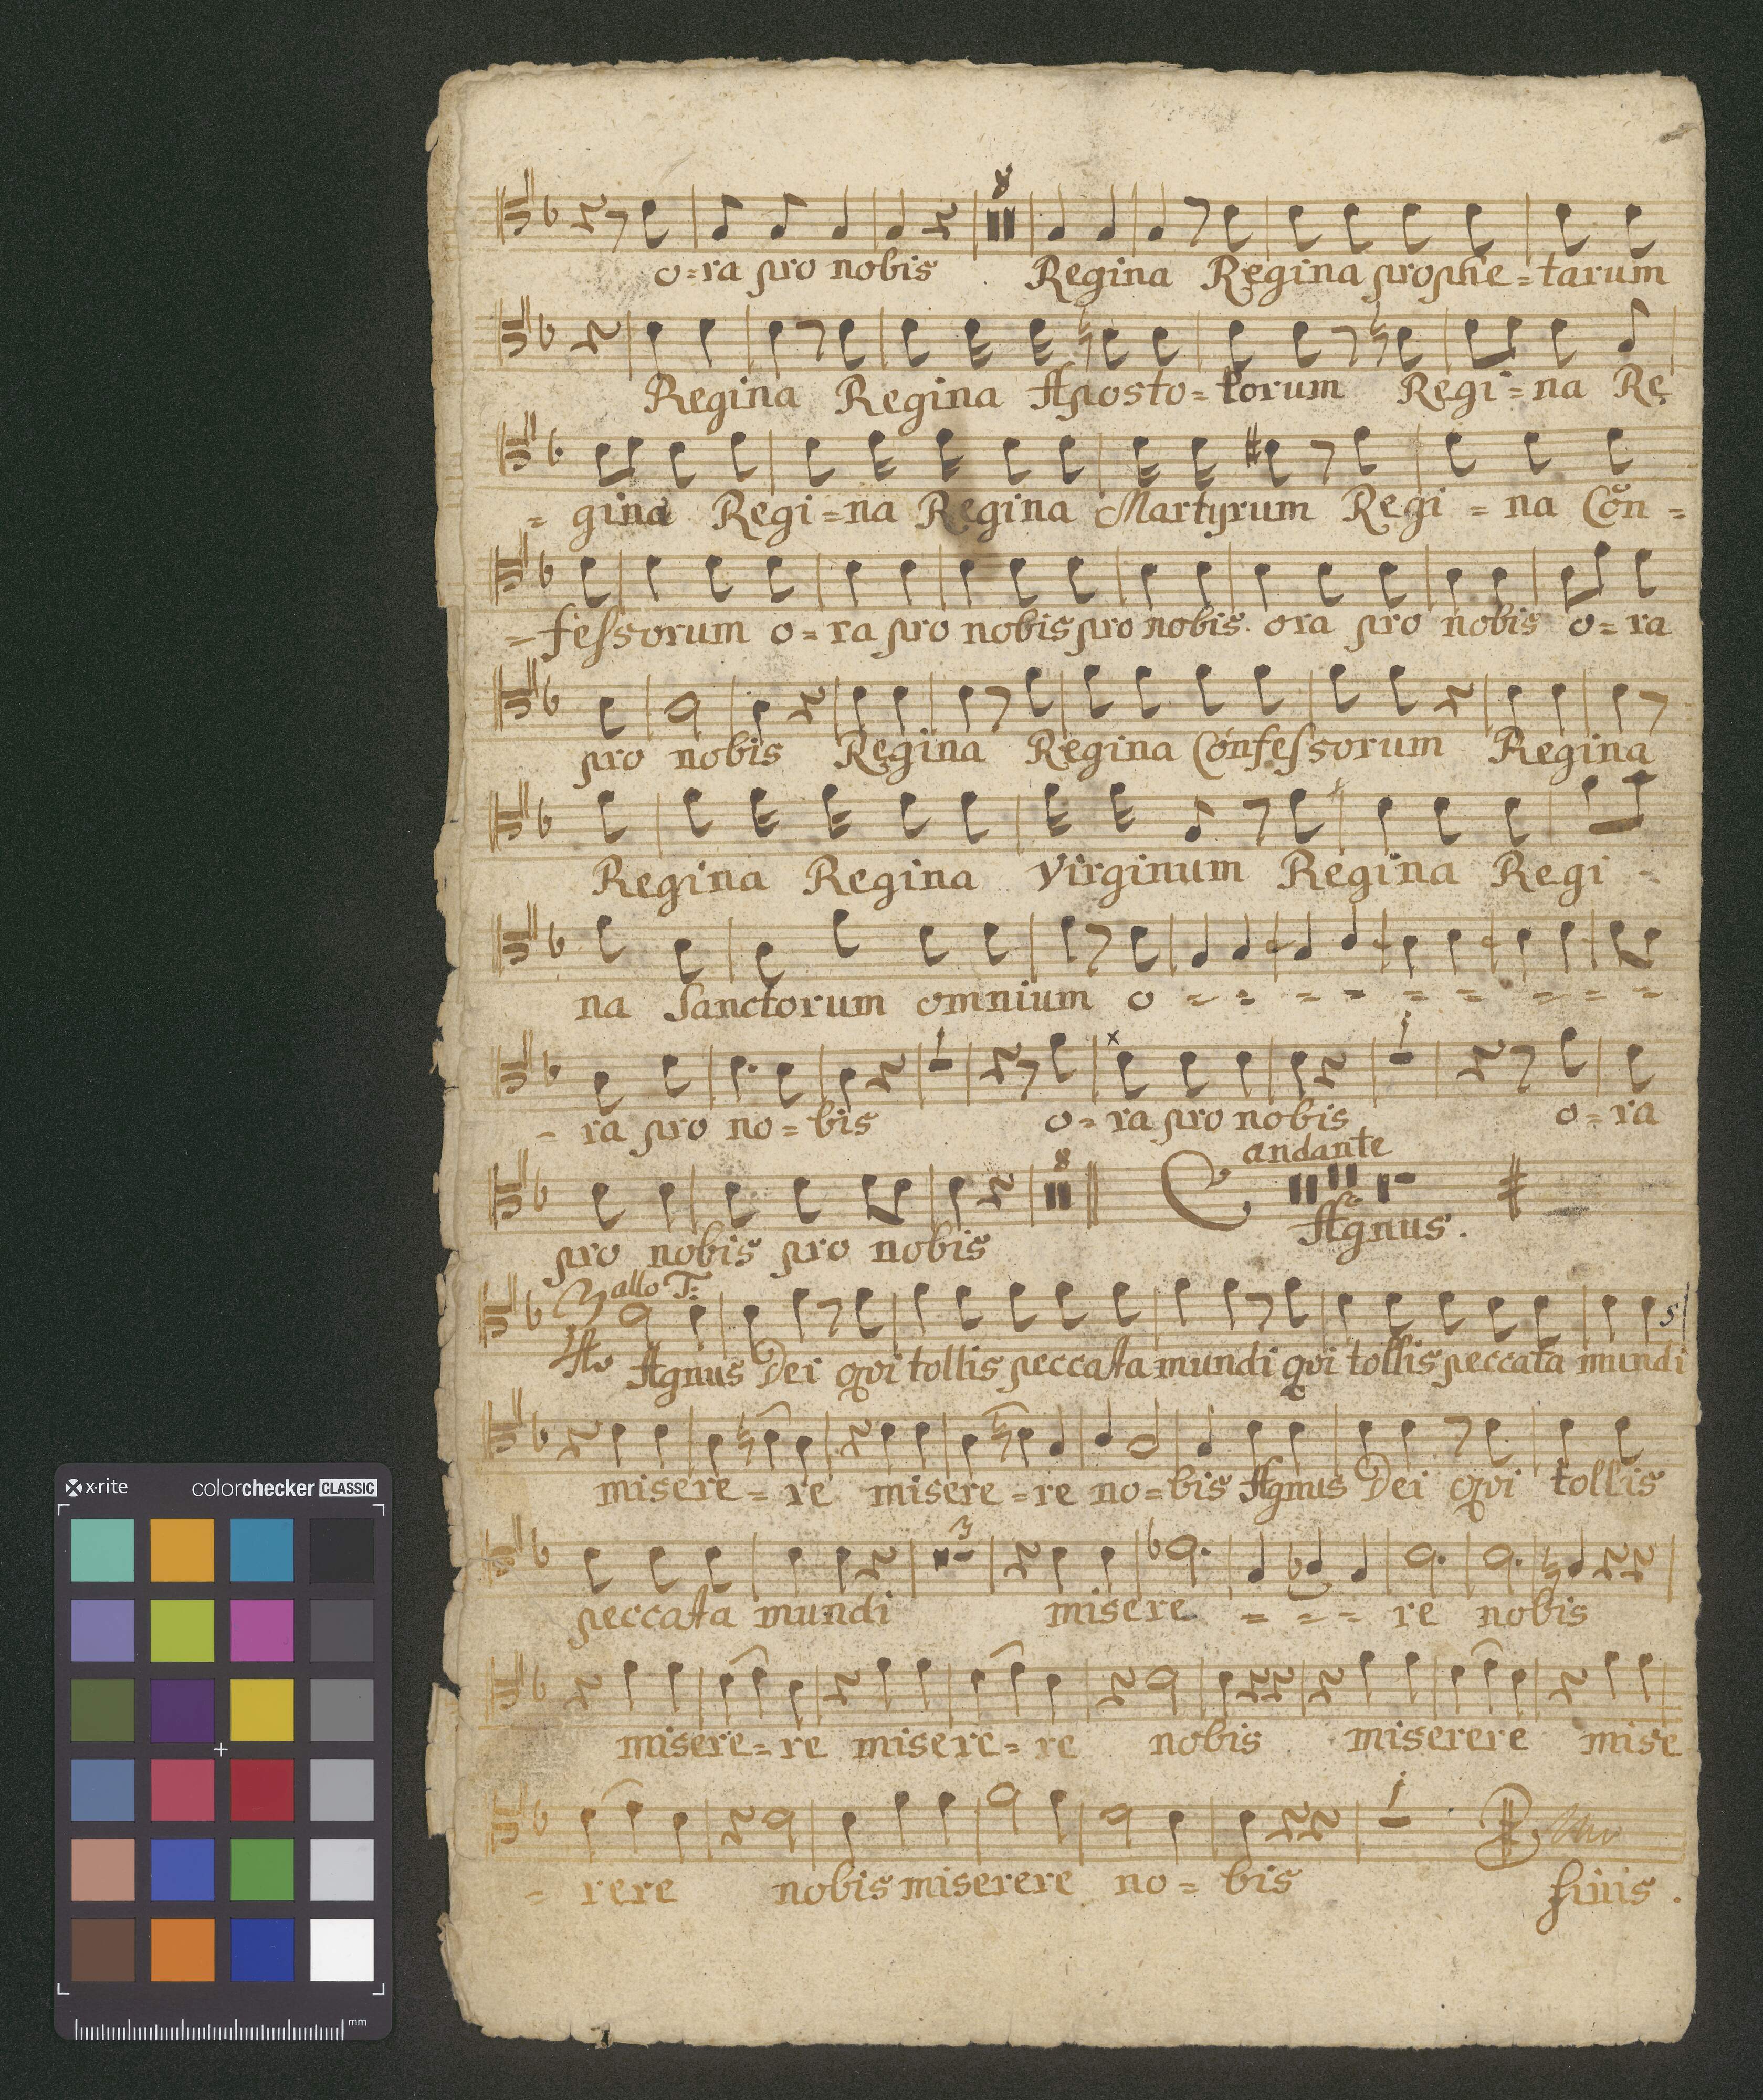 8
o=ra pro nobis Regina Regina prophe=tarum
Regina Regina Aposto=lorum Regi=na Re
= gina Regi=na Regina Martyrum Regi = na Con =
= feſsorum o=ra pro nobis pro nobis ora pro nobis o=ra
pro nobis Regina Regina Confeſsorum Regina
Regina Regina Virginum Regina Regi -
na Sanctorum omnium o = = = = = = = = =
1 1
- ra pro no=bis o=ra pro nobis o=ra
andante
8
pro nobis pro nobis Agnus.
allo T:
Agnus Dei qvi tollis peccata mundi qvi tollis peccata mundi
misere=re misere=re no=bis Agnus Dei qvi tollis
3
peccata mundi misere = = = re nobis
misere=re misere=re nobis miserere mise
1
= rere nobis miserere no= bis finis.
x·rite colorchecker CLASSIC
mm